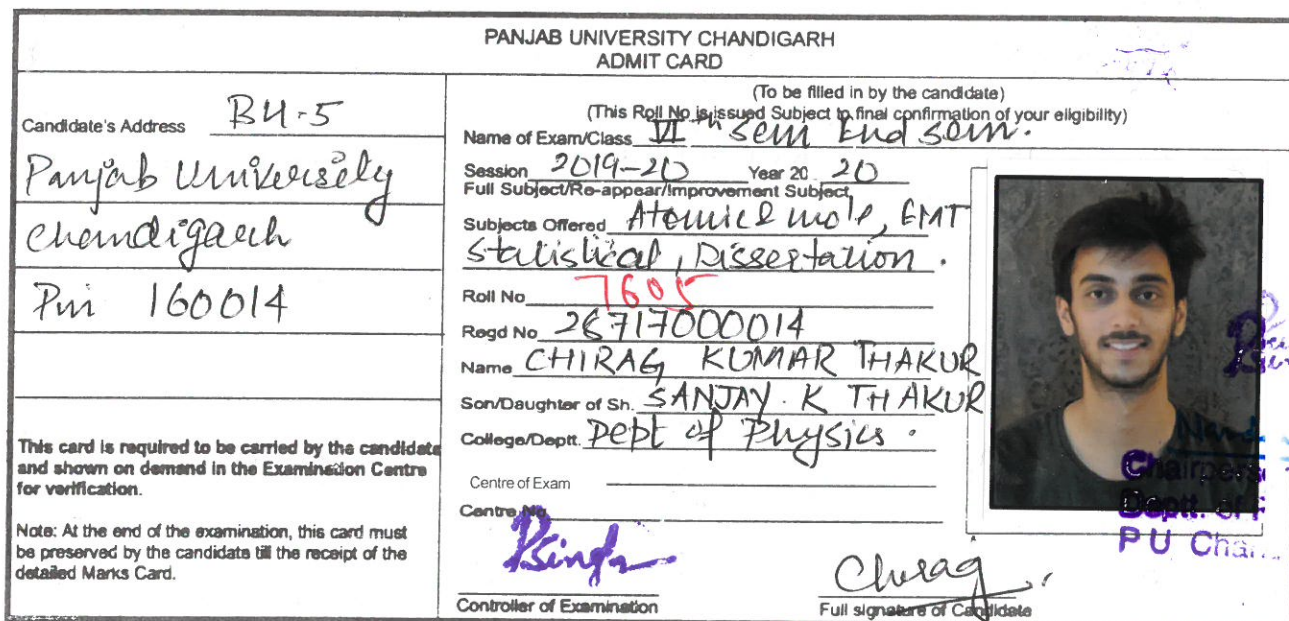 PANJAB UNIVERSITY CHANDIGARH
ADMIT CARD
Candidate's Address BH-5
Panjab University
Chandigarh
Pin 160014
This card is required to be carried by the candidate
and shown on demand in the Examination Centre
for verification.
Note: At the end of the examination, this card must
be preserved by the candidate till the receipt of the
detailed Marks Card.
(To be filled in by the candidate)
(This Roll No is issued Subject to final confirmation of your eligibility)
Name of Exam/Class VIth Sem End sem.
Session 2019-20 Year 20 20
Full Subject/Re-appear/Improvement Subject
Subjects Offered Atomic & mole, EMT
Statistical, Dissertation.
Roll No 7605
Regd No 26717000014
Name CHIRAG KUMAR THAKUR
Son/Daughter of Sh. SANJAY. K THAKUR
College/Deptt. Dept of Physics.
Centre of Exam
Centre No
PSingh
Controller of Examination
Chirag
Full signature of Candidate
Chairperso
Deptt. of P
P U Chan